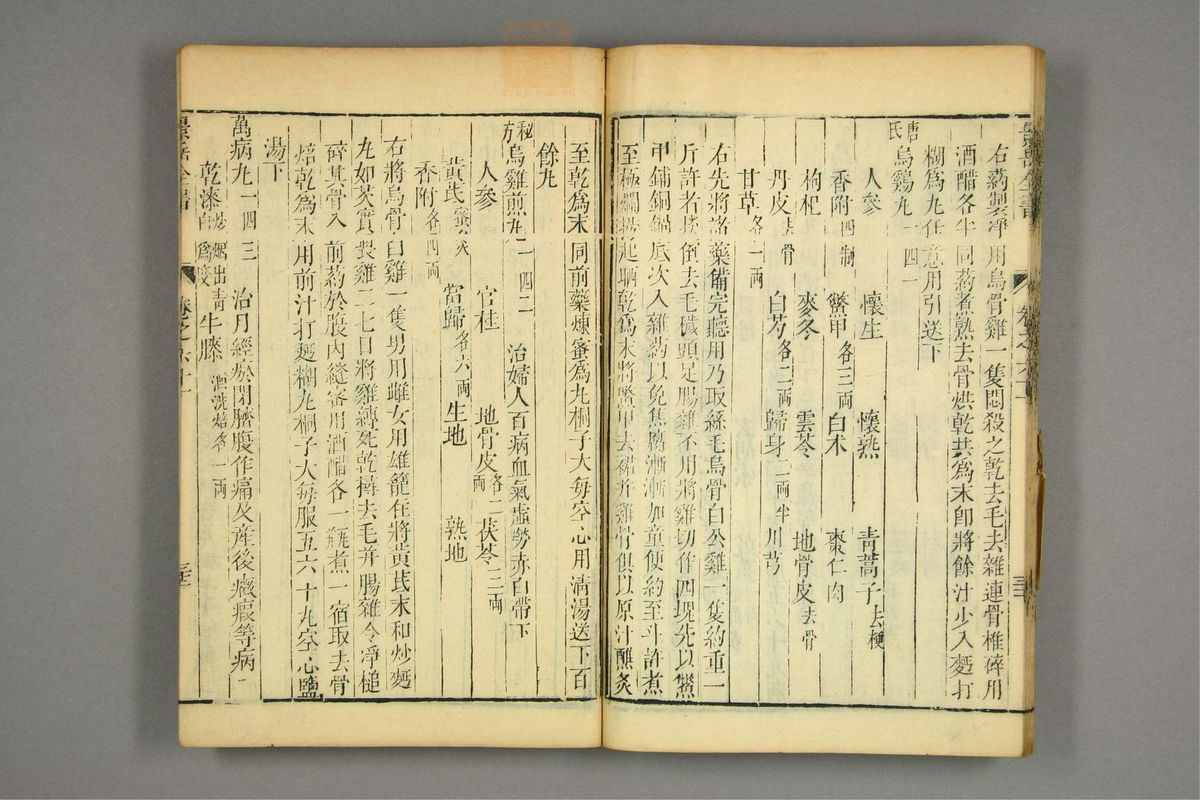 景岳全書 卷之六十一
右藥製淨用烏骨雞一隻悶殺之乾去毛去雜連骨椎碎用
酒醋各半同藥煮熟去骨烘乾共爲末卽將餘汁少入麪打
糊爲丸任意用引送下
唐氏烏鷄丸一四一
人參 懷生 懷熟 靑蒿子去梗
香附四制 鱉甲各三兩 白术 棗仁肉
枸杞 麥冬 雲苓 地骨皮去骨
丹皮去骨 白芍各二兩 歸身二兩半 川芎
甘草各一兩
右先將諸藥備完聽用乃取絲毛烏骨白公雞一隻約重一
斤許者掞倒去毛穢頭足腸雜不用將雞切作四塊先以鱉
甲鋪銅鍋底次入雞藥以免焦腐漸漸加童便約至斗許煮
至極爛撈起晒乾爲末將鱉甲去裙幷雞骨俱以原汁醮炙
至乾爲末同前藥煉蜜爲丸桐子大每空心用淸湯送下百
餘丸
秘方烏雞煎丸二四二 治婦人百病血氣虛勞赤白帶下
人參 官桂 地骨皮各二兩 茯苓三兩
黃芪蜜炙 當歸各六兩 生地 熟地
香附各四兩
右將烏骨白雞一隻男用雌女用雄籠住將黃芪末和炒麪
丸如芡實喂雞二七日將雞縛死乾撏去毛幷腸雜令凈槌
碎其骨入前藥於腹內縫密用酒醋各一瓶煮一宿取去骨
焙乾爲末用前汁打麪糊丸桐子大每服五六十丸空心鹽
湯下
萬病丸一四三 治月經瘀閉臍腹作痛及産後癥瘕等病
乾漆炒煙出靑白爲度 牛膝酒洗焙各一兩
景岳全書 卷之六十一